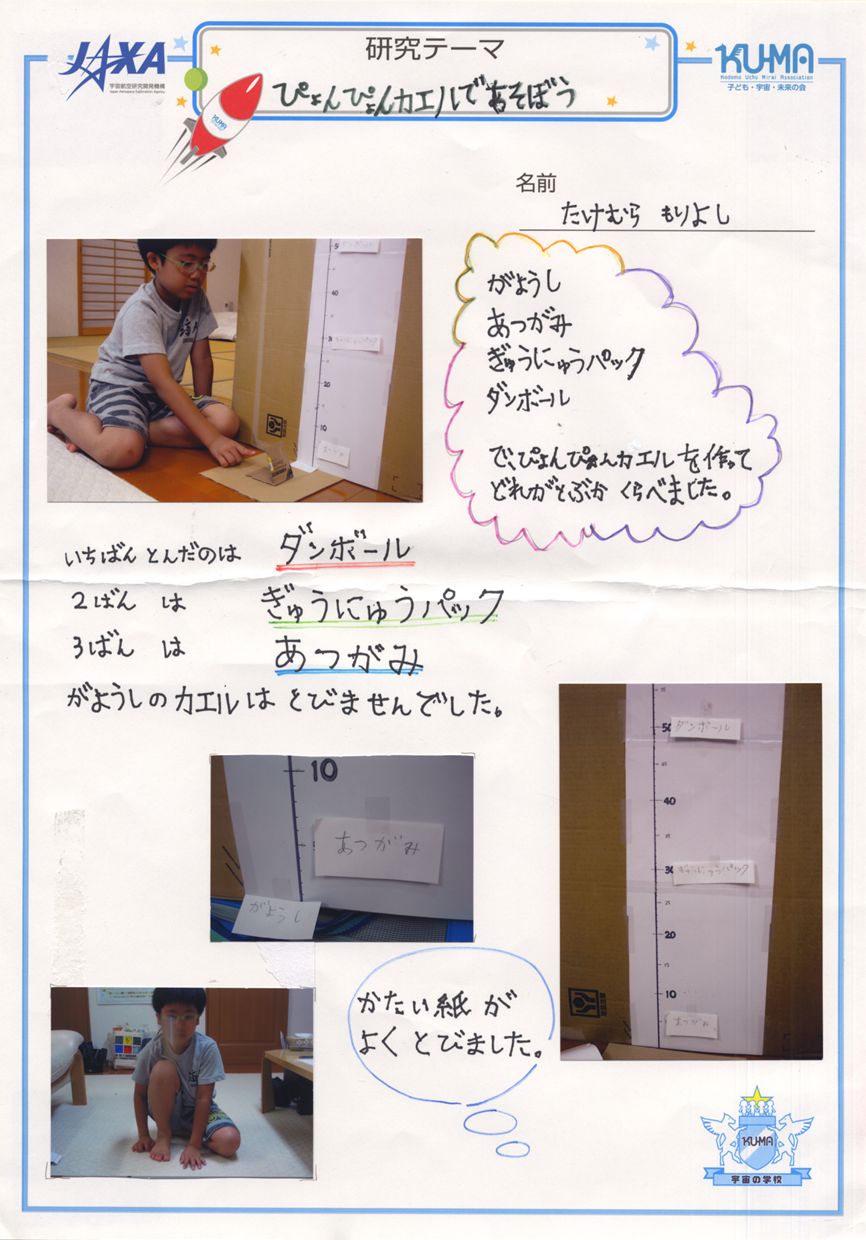 JAXA
宇宙航空研究開発機構
Japan Aerospace Exploration Agency
研究テーマ
ぴょんぴょんカエルであそぼう
KUMA
KU-MA
Kodomo Uchu Mirai Association
子ども・宇宙・未来の会
名前
たけむら もりよし
がようし
あつがみ
ぎゅうにゅうパック
ダンボール
で、ぴょんぴょんカエルを作って
どれがとぶか くらべました。
50
ダンボール
40
30
ぎゅうにゅうパック
20
10
あつがみ
いちばん とんだのは ダンボール
2ばん は ぎゅうにゅうパック
3ばん は あつがみ
がようしのカエルは とびませんでした。
10
5
あつがみ
がようし
50
ダンボール
40
30
ぎゅうにゅうパック
20
10
あつがみ
かたい紙が
よく とびました。
KUMA
宇宙の学校